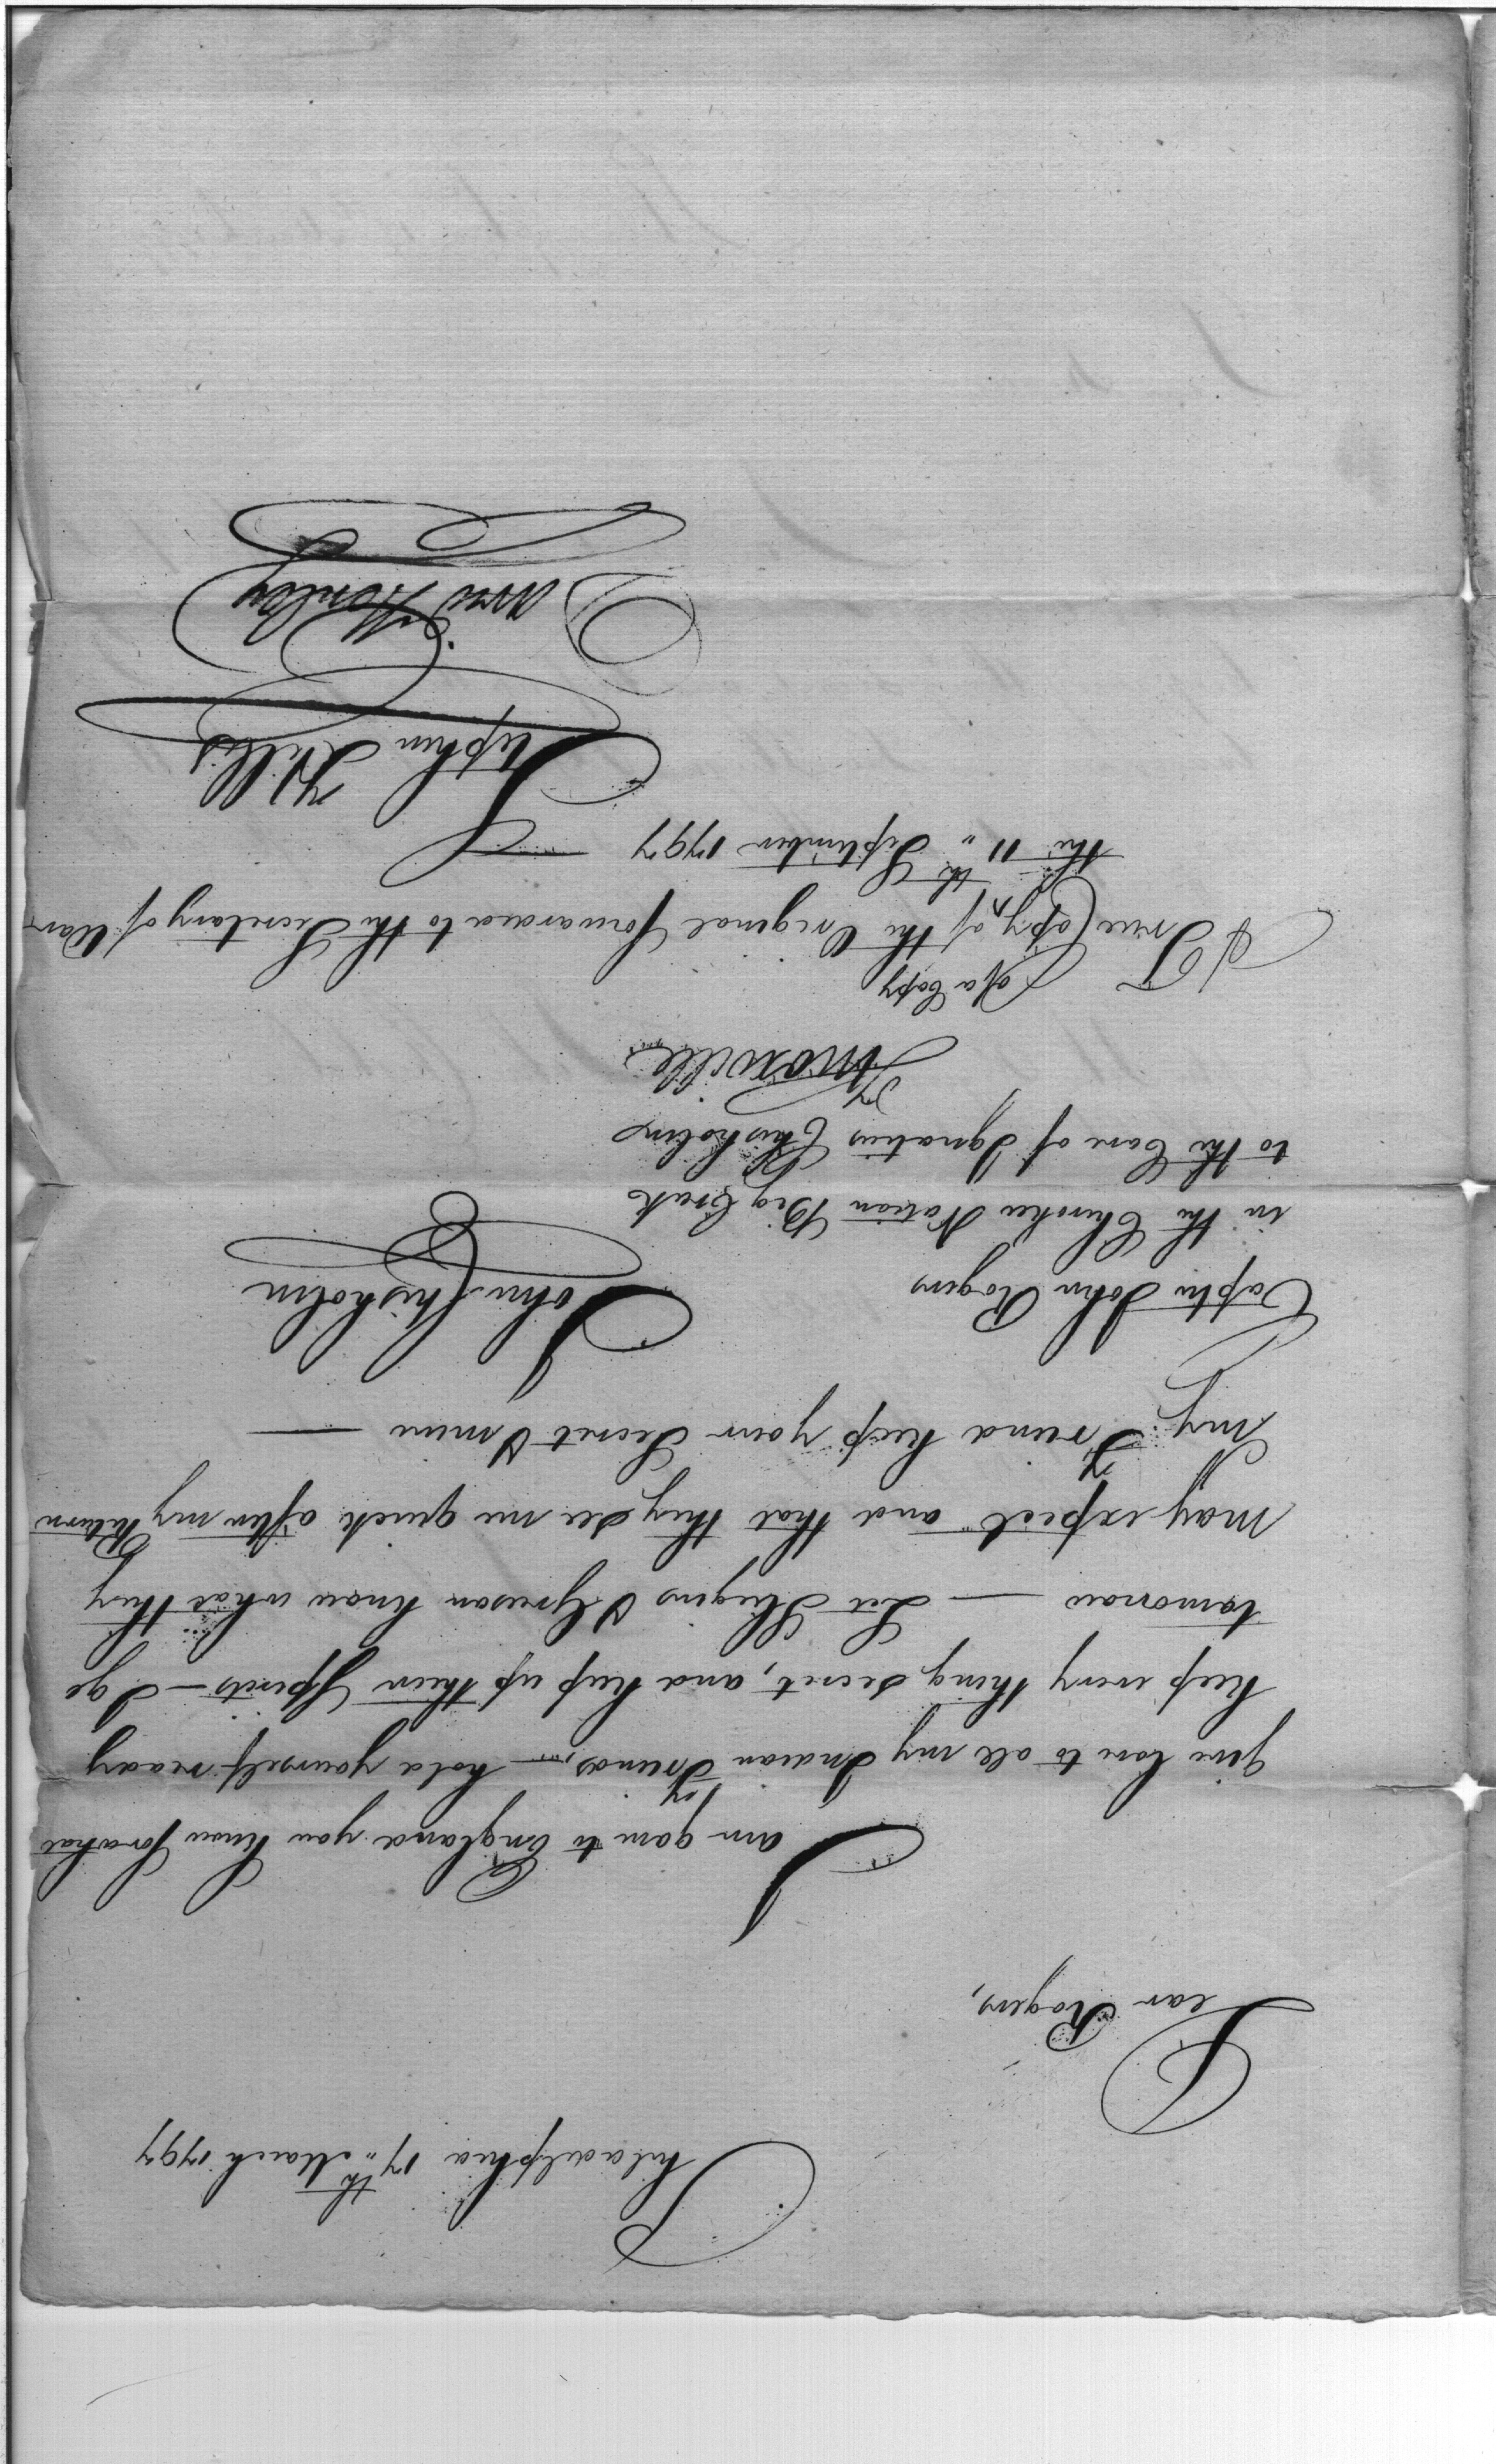 Philadelphia 17th March 1797
Dear Rogers,
I am gon to England you know for what
give love to all my Indian Friends, — hold yourself ready
keep every thing secret, and keep up their Spirits — I go
tomorrow — Let Hugins & Grierson know what they
may expect and that they see me quick after my Return
my Friend keep your Secret & mine —
John Chisholm
Captn John Rogers
in the Cherokee Nation Big Creek
to the Care of Ignatius Chisholm
Knoxville
of a Copy
A True Copy ^ of the Original forwarded to the Secretary of War
the 11th September 1797 —
Stephen Hillis
David Henley